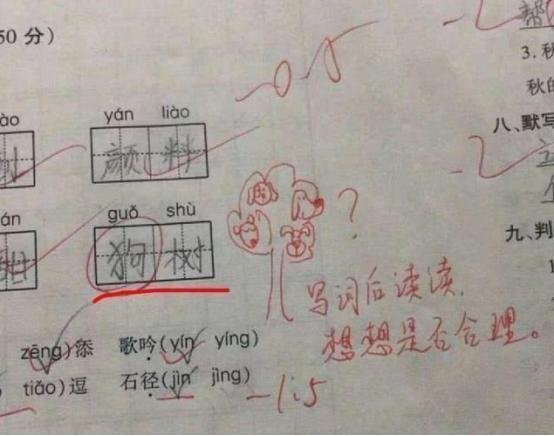 50 分)
-0.5
3. 秋
秋的
ào yán liào
颜料
八、默写
án guǒ shù
狗树
?
九、判
写词后读读,
想想是否合理。
zēng)添 歌吟(yín yíng)
tiǎo)逗 石径(jìn jìng)
-1.5